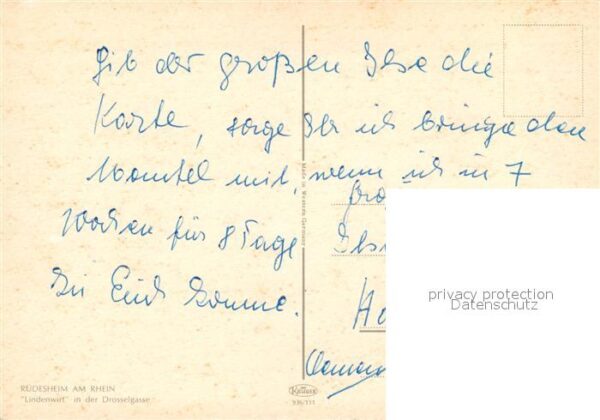 Gib der großen Ilse die
Karte, sage Ihr ich bringe den
Mantel mit, wenn ich in 7
Wochen für 8 Tage
zu Euch komme.
Made in Western Germany
privacy protection
Datenschutz
RÜDESHEIM AM RHEIN
"Lindenwirt" in der Drosselgasse
Krüger
936/111